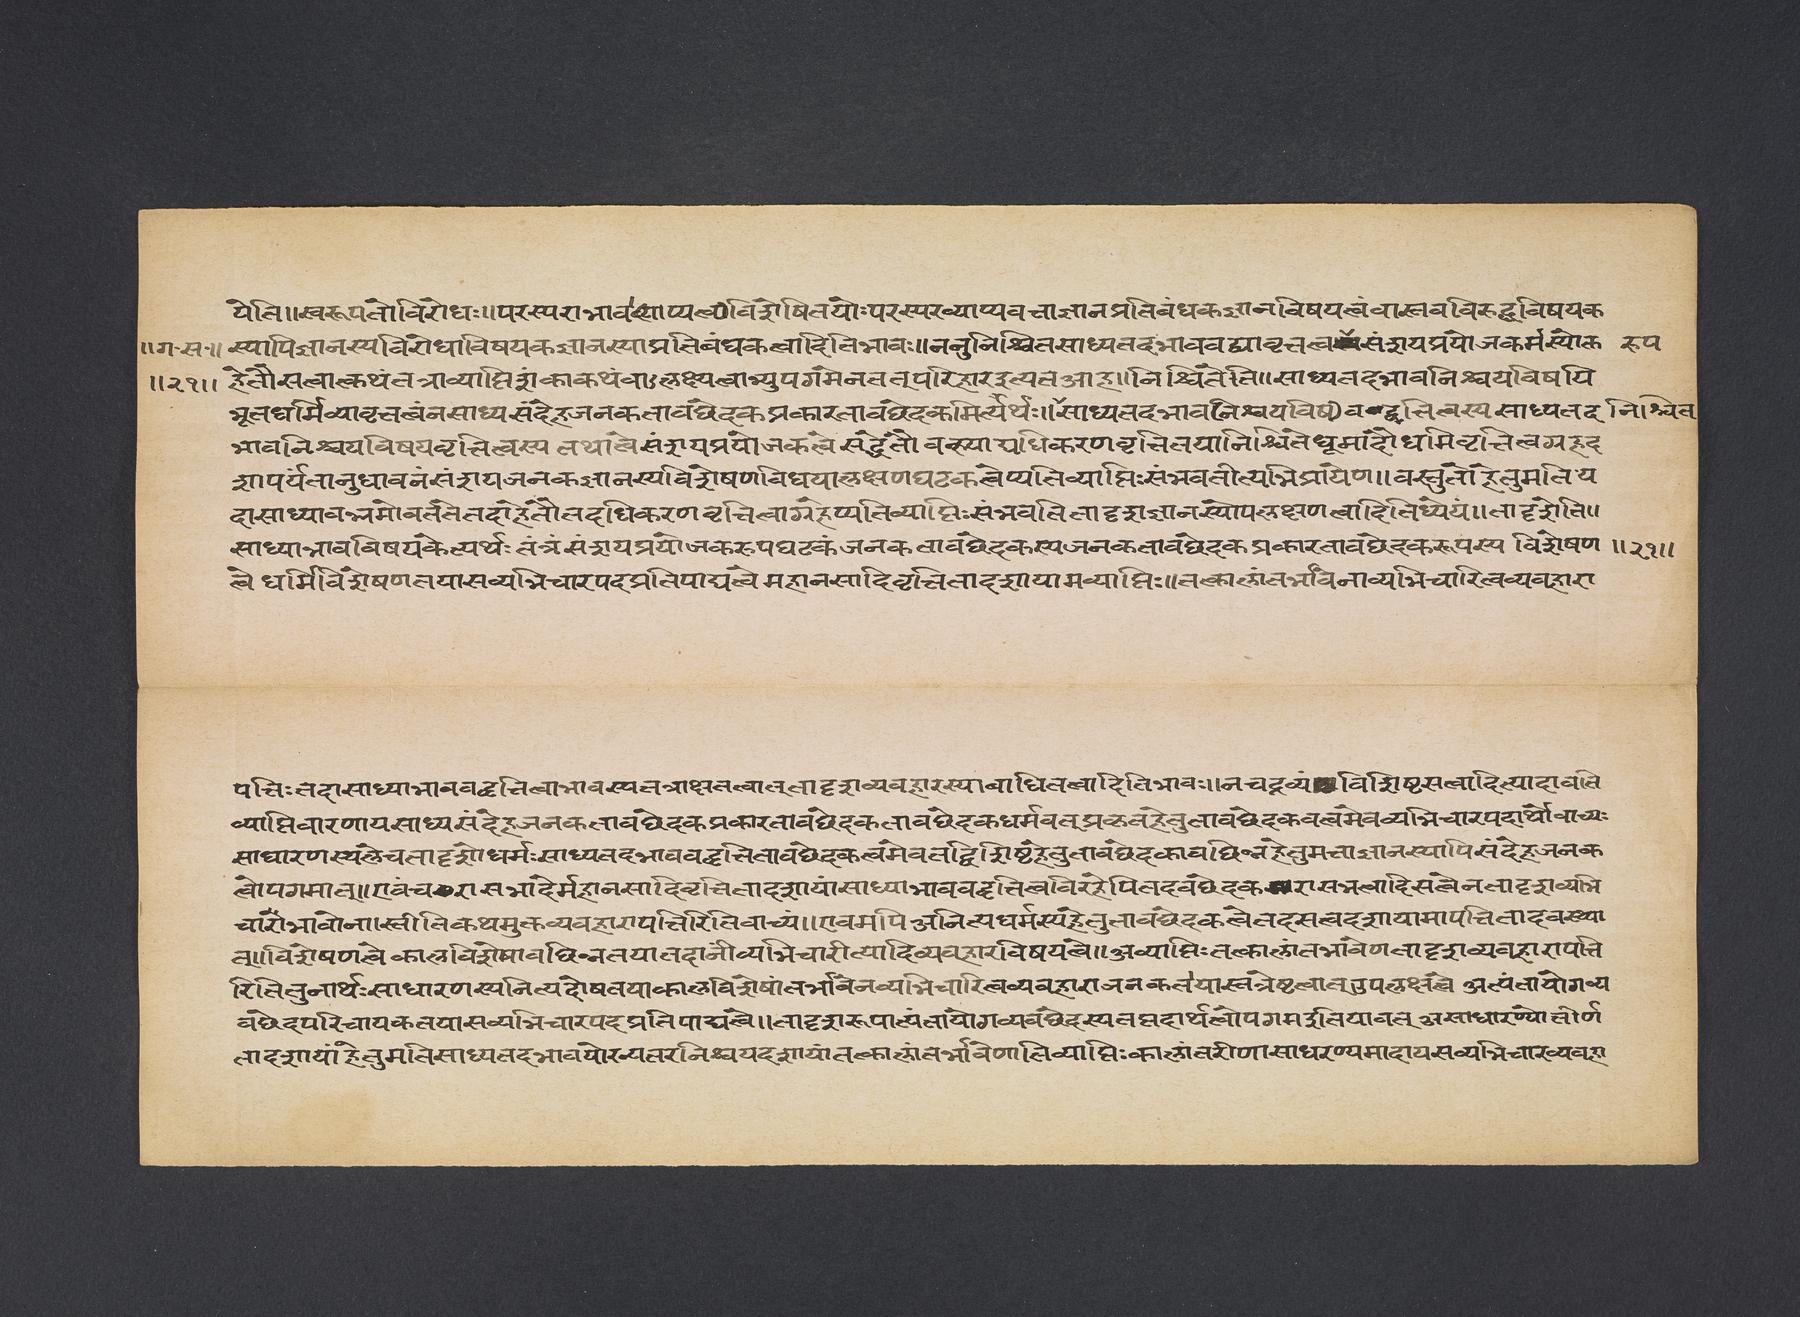 येति॥स्वरूपतोविरोधः॥परस्पराभावव्याप्यत्वाविशेषितयोःपरस्परव्याप्यवत्ताज्ञानप्रतिबंधकज्ञानविषयत्वंवास्तवविरुद्धविषयक
॥ग॰स॰॥ स्यापिज्ञानस्यविरोधाविषयकज्ञानस्याप्रतिबंधकत्वादितिभावः॥ननुनिश्चितसाध्यतदभाववद्व्यावृत्तत्वसंशयप्रयोजकर्मस्योक्त रूप
॥२१॥ हेतौसत्वात्कथंतत्राव्याप्तिशंकाकथंवालक्ष्यत्वाभ्युपगमेनतत्परिहारइत्यतआह॥निश्चितेति॥साध्यतदभावनिश्चयविषयि
भूतधर्मिव्यावृत्तत्वंनसाध्यसंदेहजनकतावछेदकप्रकारतावछेदकमित्यर्थः॥साध्यतदभावनिश्चयविषवद्वृत्तित्वस्यसाध्यतद निश्चित
भावनिश्चयविषयवृत्तित्वस्य तथात्वेसंशयप्रयोजकत्वे सद्धेतौ वन्ह्याद्यधिकरणवृत्तितयानिश्चितेधूमादौधर्मिवृत्तित्वग्रहद
शापर्यंतानुधावनंसंशयजनकज्ञानस्यविशेषणविधयालक्षणघटकत्वेप्यतिव्याप्तिःसंभवतीत्यभिप्रायेण॥वस्तुतोहेतुमतिय
दासाध्याभावभ्रमोवर्ततेतदाहेतौतदधिकरणवृत्तित्वाग्रहेप्यतिव्याप्तिःसंभवतितादृशज्ञानस्योपलक्षणत्वादितिध्येयं॥तादृशेति॥
साध्याभावविषयकेत्यर्थःतंत्रंसंशयप्रयोजकरूपघटकंजनकतावछेदकस्यजनकतावछेदकप्रकारतावछेदकरूपस्य विशेषण ॥२१॥
त्वे धर्मिविशेषणतयासव्यभिचारपदप्रतिपाद्यत्वेमहानसादिवृत्तितादशायामव्याप्तिः॥तत्कालांतर्भावेनाव्यभिचारित्वव्यवहारा
पत्तिःतदासाध्याभाववद्वृत्तित्वाभावस्यतत्राक्षतत्वात्तादृशव्यवहारस्याबाधितत्वादितिभावः॥नचद्रव्यंविशिष्टसत्वादित्यादावति
व्याप्तिवारणायसाध्यसंदेहजनकतावछेदकप्रकारतावछेदकतावछेदकधर्मवत्प्रकृतहेतुतावछेदकवत्वमेवव्यभिचारपदार्थोवाच्यः
साधारणस्थलेचतादृशोधर्मःसाध्यतदभाववद्वृत्तितावछेदकत्वमेवतद्विशिष्टहेतुतावछेदकावछिन्नहेतुमत्ताज्ञानस्यापिसंदेहजनक
त्वोपगमात्॥एवंचरासभादेर्महानसादिवृत्तितादशायांसाध्याभाववद्वृत्तित्वविरहेपितदवछेदकरासभत्वादिसत्वेनतादृशव्यभि
चाराभावोनास्तीतिकथमुक्तव्यवहारापत्तिरितिवाच्यं॥एवमपिअनित्यधर्मस्यहेतुतावछेदकत्वेतदसत्वदशायामापत्तितादवस्थ्या
त्॥विशेषणत्वे कालविशेषावछिन्नतयातदानींव्यभिचारीत्यादिव्यवहारविषयत्वे॥अव्याप्तिःतत्कालांतर्भावेणतादृशव्यवहारापत्ति
रितितुनार्थःसाधारणस्यनित्यदोषतयाकालविशेषांतर्भावेनव्यभिचारित्वव्यवहाराजनकतयास्वत्रेष्टत्वात्उपलक्षत्वे अत्यंतायोगव्य
वछेदपरिचायकतयासव्यभिचारपदप्रतिपाद्यत्वे॥तादृशरूपात्यंतायोगव्यवछेदस्यतत्पदार्थत्वोपगमइतियावत् असाधारण्योत्तीर्ण
तादशायांहेतुमतिसाध्यतदभावयोरन्यतरनिश्चयदशायांतत्कालांतर्भावेणातिव्याप्तिःकालांतरीणासाधरण्यमादायसव्यभिचारव्यवहा